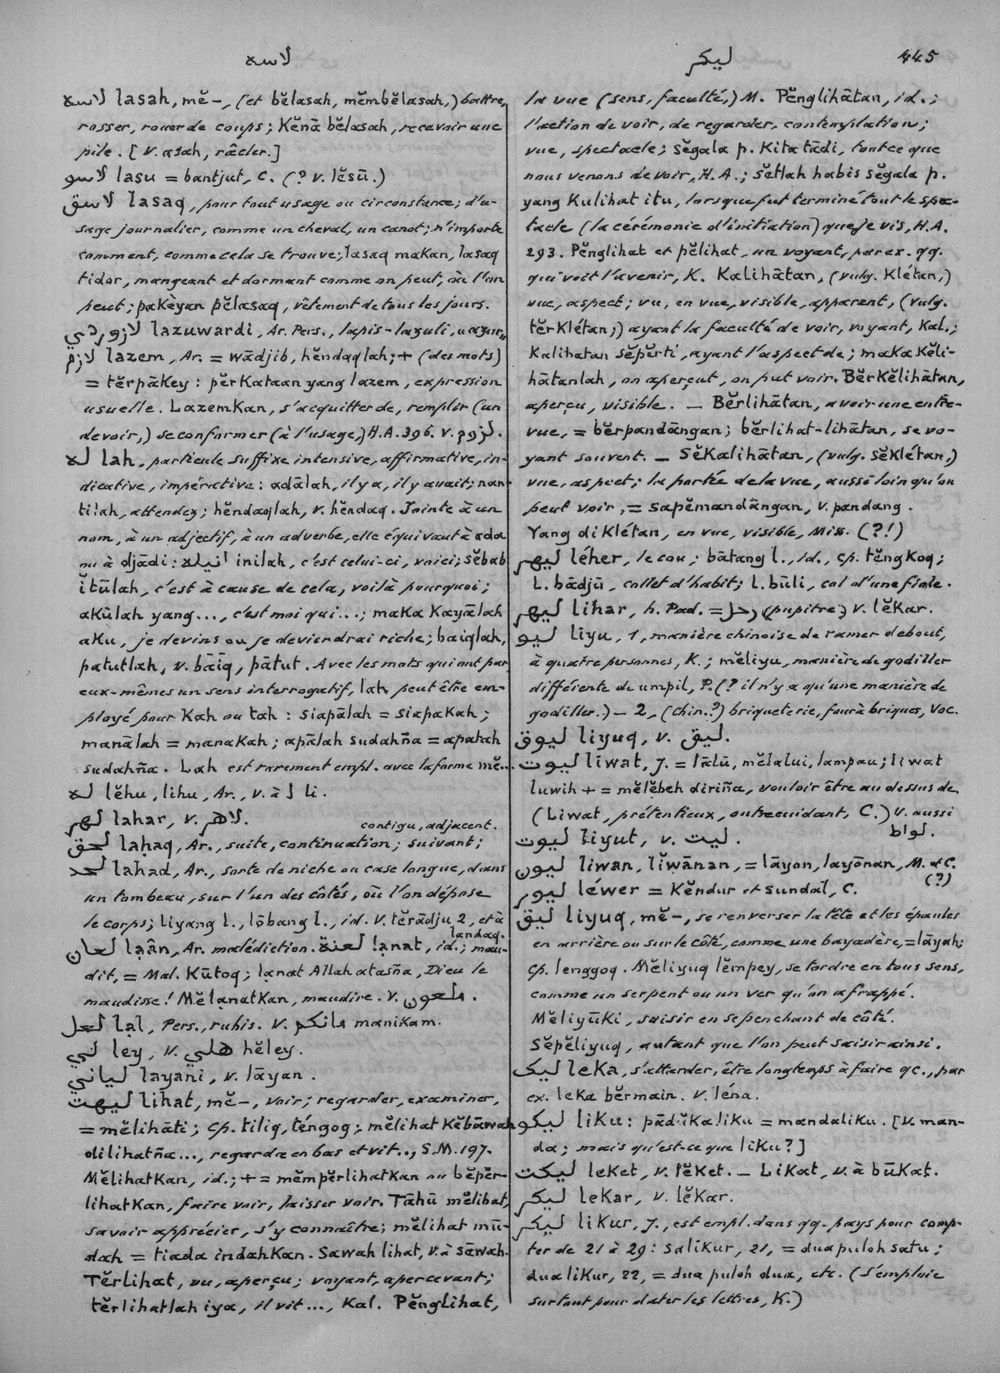 لاسه
ليكر
445
لاسه lasah, mĕ-, (et bĕlasah, mĕmbĕlasah,) battre,
rosser, rouer de coups; Kĕnā bĕlasah, recevoir une
pile. [V. asah, râcler.]
لاسو lasu = bantjut, C. (? v. lĕsū.)
لاسق lasaq, pour tout usage ou circonstance; d'u-
sage journalier, comme un cheval, un canot; n'importe
comment, comme cela se trouve; lasaq makan, lasaq
tidor, mangeant et dormant comme on peut, où l'on
peut; pakèyan pĕlasaq, vêtement de tous les jours.
لازوردي lazuwardi, Ar. Pers., lapis-lazuli, azur.
لازم lazem, Ar. = wādjib, hĕndaqlah; + (des mots)
= tĕrpākey: pĕrkataan yang lazem, expression
usuelle. Lazemkan, s'acquitter de, remplir (un
devoir,) se conformer (à l'usage,) H.A. 396. v. لزوم.
له lah, particule suffixe intensive, affirmative, in-
dicative, impérative: adālah, il y a, il y avait; nan-
tilah, attendez; hĕndaqlah, v. hĕndaq. Jointe à un
nom, à un adjectif, à un adverbe, elle équivaut à ada
ou à djādi: انيله inilah, c'est celui-ci, voici; sĕbab
ītūlah, c'est à cause de cela, voilà pourquoi;
akūlah yang..., c'est moi qui...; maka kayālah
aku, je devins ou je deviendrai riche; baiqlah,
patutlah, v. bāiq, pātut. Avec les mots qui ont par
eux-mêmes un sens interrogatif, lah peut être em-
ployé pour kah ou tah: siapālah = siapakah;
manālah = manakah; apālah sudahña = apakah
sudahña. Lah est rarement empl. avec la forme mĕ...
له lĕhu, lihu, Ar., v. à ل li.
لهر lahar, v. لاهر.
contigu, adjacent.
لحق laḥaq, Ar., suite, continuation; suivant;
لحد laḥad, Ar., sorte de niche ou case longue, dans
un tombeau, sur l'un des côtés, où l'on dépose
le corps; liyang l., lōbang l., id. V. tĕrādju 2, et à
landaq.
لعان laạ̄n, Ar. malédiction. لعنة lạnat, id.; mau-
dit, = Mal. Kūtoq; lạnat Allah atasña, Dieu le
maudisse! Mĕlạnatkan, maudire. V. ملعون.
لعل lạl, Pers., rubis. V. مانكم manikam.
لي ley, v. هلي hĕley.
لياني layani, v. lāyan.
ليهت lihat, mĕ-, voir; regarder, examiner,
= mĕlihāti; cp. tiliq, téngoq; mĕlihat kĕbāwah
dilihatña..., regarda en bas et vit.., S.M. 197.
Mĕlihatkan, id.; + = mĕmpĕrlihatkan ou bĕpĕr-
lihatkan, faire voir, laisser voir. Tāhū mĕlihat,
savoir apprécier, s'y connaître; mĕlihat mū-
dah = tiada indahkan. Sawah lihat, v. à sāwah.
Tĕrlihat, vu, aperçu; voyant, apercevant;
tĕrlihatlah iya, il vit..., Kal. Pĕnglihat,
la vue (sens, faculté,) M. Pĕnglihātan, id.;
l'action de voir, de regarder, contemplation;
vue, spectacle; sĕgala p. Kita tādi, tout ce que
nous venons de voir, H.A.; sĕtlah habis sĕgala p.
yang Kulihat itu, lorsque fut terminé tout le spec-
tacle (la cérémonie d'initiation) que je vis, H.A.
293. Pĕnglihat et pĕlihat, un voyant, par ex. qq.
qui voit l'avenir, K. Kalihātan, (vulg. Klétan,)
vue, aspect; vu, en vue, visible, apparent, (vulg.
tĕrKlétan;) ayant la faculté de voir, voyant, Kal.;
Kalihatan sĕpĕrti, ayant l'aspect de; maka kĕli-
hātanlah, on aperçut, on put voir. Bĕrkĕlihātan,
aperçu, visible. — Bĕrlihātan, avoir une entre-
vue, = bĕrpandāngan; bĕrlihat-lihātan, se vo-
yant souvent. — Sĕkalihātan, (vulg. sĕklétan,)
vue, aspect; la portée de la vue, aussi loin qu'on
peut voir, = sapĕmandāngan, v. pandang.
Yang di Klétan, en vue, visible, Miss. (?!)
ليهر léher, le cou; bātang l., id., cp. tĕngkoq;
L. bādjū, collet d'habit; L. būli, col d'une fiole.
ليهر lihar, h. Pad. = رحل (pupitre) v. lĕkar.
ليو liyu, 1, manière chinoise de ramer debout,
à quatre personnes, K.; mĕliyu, manière de godiller
différente de umpil, P. (? il n'y a qu'une manière de
godiller.) — 2, (Chin.?) briqueterie, four à briques, Voc.
ليوق liyuq, v. ليق.
ليوت liwat, J. = lātū, mĕlalui, lampau; liwat
luwih + = mĕlĕbeh diriña, vouloir être au dessus de
(Liwat, prétentieux, outrecuidant, C.) V. aussi
لواط.
ليوت liyut, v. ليت.
ليون liwan, līwānan, = lāyon, layōnan, M. & C.
(?)
ليور léwer = Kĕndur et sundal, C.
ليوق liyuq, mĕ-, se renverser la tête et les épaules
en arrière ou sur le côté, comme une bayadère, = lāyah;
cp. lenggoq. Mĕliyuq lĕmpey, se tordre en tous sens,
comme un serpent ou un ver qu'on a frappé.
Mĕliyūki, saisir en se penchant de côté.
Sĕpĕliyuq, autant que l'on peut saisir ainsi.
ليك leka, s'attarder, être longtemps à faire qc., par
ex. leka bĕrmain. v. léna.
ليكو liku: pād'ikaliku = mandaliku. [V. man-
da; mais qu'est-ce que liku?]
ليكت leket, v. lĕket. — Likat, v. à būkat.
ليكر lekar, v. lĕkar.
ليكر likur, J., est empl. dans qq. pays pour comp-
ter de 21 à 29: salikur, 21, = dua puloh satu;
dua likur, 22, = dua puloh dua, etc. (S'emploie
surtout pour dater les lettres, K.)